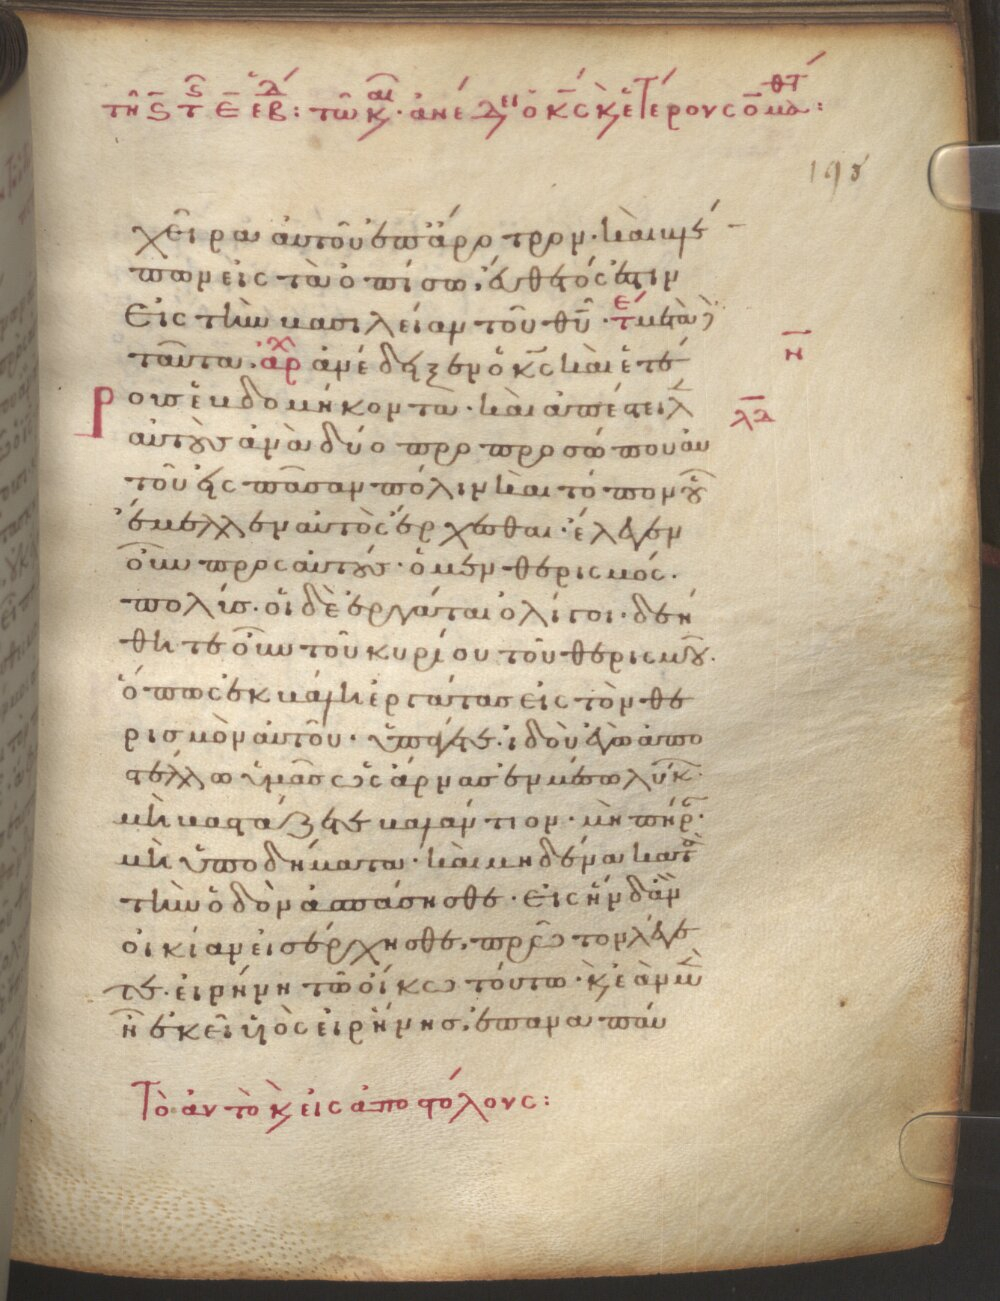 τῆς ϛ τ ε ἑβ: τῶ καὶ· ἀνέδει ὁ κς κ ἑτέρους ο ματθ:
198
χεῖρα αὐτοῦ ἐπ ἄροτρον· καὶ βλέ
πων εἰς τὰ ὀπίσω, εὔθετός ἐστιν
εἰς τὴν βασιλείαν τοῦ θυ· τε μετὰ
ταῦτα· αρχ ἀνέδειξεν ὁ κς καὶ ἑτέ
η
ρους ἑβδομήκοντα· καὶ ἀπέστειλ
λδ
αὐτοὺς ἀνὰ δύο πρὸ προσώπου αὐ
τοῦ εἰς πᾶσαν πόλιν καὶ τόπον οὗ
ἔμελλεν αὐτὸς ἔρχεσθαι· ἔλεγεν
οὖν πρὸς αὐτούς· ὁ μὲν θερισμός
πολύς· οἱ δὲ ἐργάται ὀλίγοι· δεή
θητε οὖν τοῦ κυρίου τοῦ θερισμοῦ·
ὅπως ἐκβάλη ἐργάτας εἰς τὸν θε
ρισμὸν αὐτοῦ· ὑπάγετε· ἰδοὺ ἐγὼ ἀπο
στέλλω ὑμᾶς ὡς ἄρνας ἐν μέσω λύκ·
μὴ βαστάζετε βαλάντιον· μὴ πήρ·
μὴ ὑποδήματα· καὶ μηδένα κατὰ
τὴν ὁδὸν ἀσπάσησθε· εἰς ἣν δ᾽ ἂν
οἰκίαν εἰσέρχησθε, πρῶτον λέγε
τε· εἰρήνη τῶ οἴκω τούτω· κ ἐὰν μὲν
ἦ ἐκεῖ υἱὸς εἰρήνης, ἐπαναπαύ
Τὸ αὐτὸ κ εἰς ἀποστόλους: